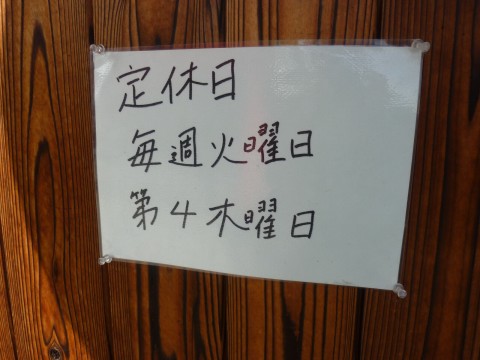 定休日
毎週火曜日
第4木曜日